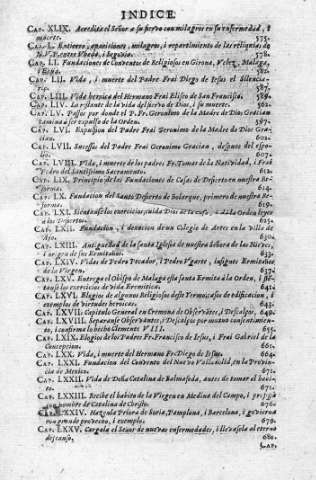 INDICE.
CAP. XLIX. Acredita el Señor a su siervo con milagros en su enfermedad, i
muerte. 575.
CAP. L. Entierro, apariciones, milagros, i repartimiento de las reliquias de
N. V. P. entre Ubeda, i Segovia. 578.
CAP. LI. Fundaciones de Conventos de Religiosos en Girona, Velez, Malaga,
582.
CAP. LII. Vida, i muerte del Padre Frai Diego de Jesus el Silencia-
rio. 585.
CAP. LIII. Vida heroica del Hermano Frai Eliseo de San Francisco. 589.
CAP. LIV. La restante de la vida del siervo de Dios, i su muerte. 592.
CAP. LV. Passos por donde el P. Fr. Geronimo de la Madre de Dios Gracian
camina a ser expulso de la Orden. 597.
CAP. LVI. Expulsion del Padre Frai Geronimo de la Madre de Dios Gra-
cian. 602.
CAP. LVII. Sucessos del Padre Frai Geronimo Gracian, despues del espo-
607.
CAP. LVIII. Vida, i muerte de los padres Fr. Tomas de la Natividad, i Frai
Pedro del Santissimo Sacramento. 612.
CAP. LIX. Principio de las Fundaciones de Casas de Desierto en nuestra Re-
forma. 614.
CAP. LX. Fundacion del Santo Desierto de Bolarque, primero de nuestra Re-
forma. 619.
CAP. LXI. 624.
CAP. LXII. Fundacion, i donacion de un Colegio de Artes en la villa de
629.
CAP. LXIII. Antiguedad de la santa Iglesia de nuestra Señora de las Nieves,
i origen de sus Ermitaños. 632.
CAP. LXIV. Vidas de Pedro Pecador, i Pedro Ugarte, insignes Ermitaños
de la Virgen. 637.
CAP. LXV. Entrega el Obispo de Malaga esta santa Ermita à la Orden, i
los exercicios de vida Eremitica. 642.
CAP. LXVI. Elogios de algunos Religiosos deste Termo; casos de edificacion, i
exemplos de virtudes heroicas. 645.
CAP. LXVII. Capitulo General en Cremona de Observantes, i Descalços. 649.
CAP. LXVIII. Separanse Observantes, i Descalços por mutuo consentimien-
to, i confirma lo hecho Clemente VIII. 655.
CAP. LXIX. Elogios de los Padres Fr. Francisco de Jesus, i Frai Gabriel de la
Concepcion. 661.
CAP. LXX. Vida, i muerte del Hermano Fr. Diego de Jesus. 664.
CAP. LXXI. Fundacion del Convento del Novo Valladolid, en la Provin-
cia de Mexico. 671.
CAP. LXXII. Vida de Doña Catalina de Balmaseda, antes de tomar el habi-
to. 672.
CAP. LXXIII. Recibe el habito de la Virgen en Medina del Campo, i
nombre de Catalina de Christo. 676.
LXXIV. Hazenla Priora de Soria, Pamplona, i Barcelona, i govierna
con grande provecho, i exemplo. 678.
CAP. LXXV. Cargala el Señor de nuevas enfermedades, i llevasela al eterno
descanso. 680.
CAP.